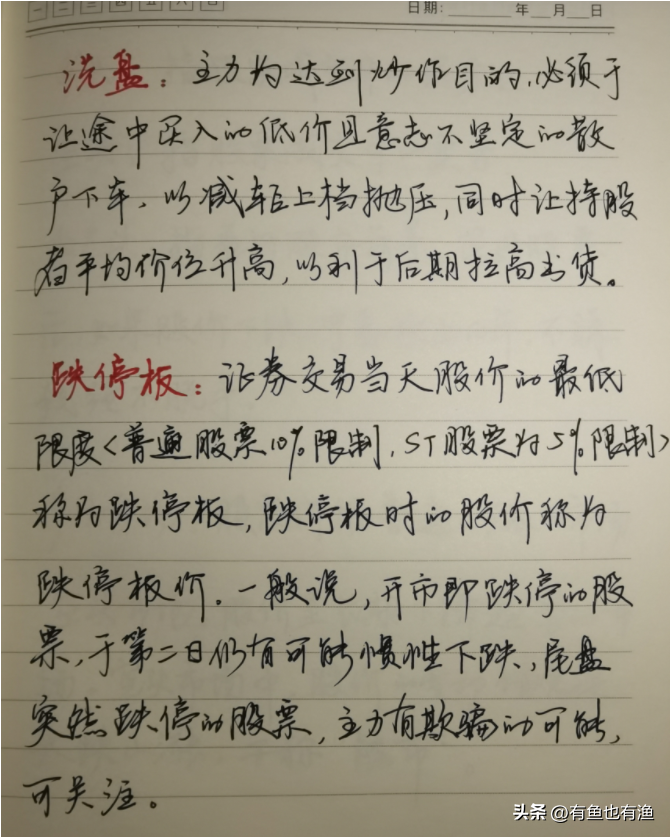 一 二 三 四 五 六 日
日期: 年 月 日
洗盘：主力为达到炒作目的,必须于
让途中买入的低价且意志不坚定的散
户下车、以减轻上档抛压,同时让持股
者平均价位升高,以利于后期拉高出货。
跌停板：证券交易当天股价的最低
限度<普通股票10%限制,ST股票为5%限制>
称为跌停板,跌停板时的股价称为
跌停板价。一般说,开市即跌停的股
票,于第二日仍有可能惯性下跌,尾盘
突然跌停的股票,主力有欺骗的可能,
可关注。
头条 @有鱼也有渔